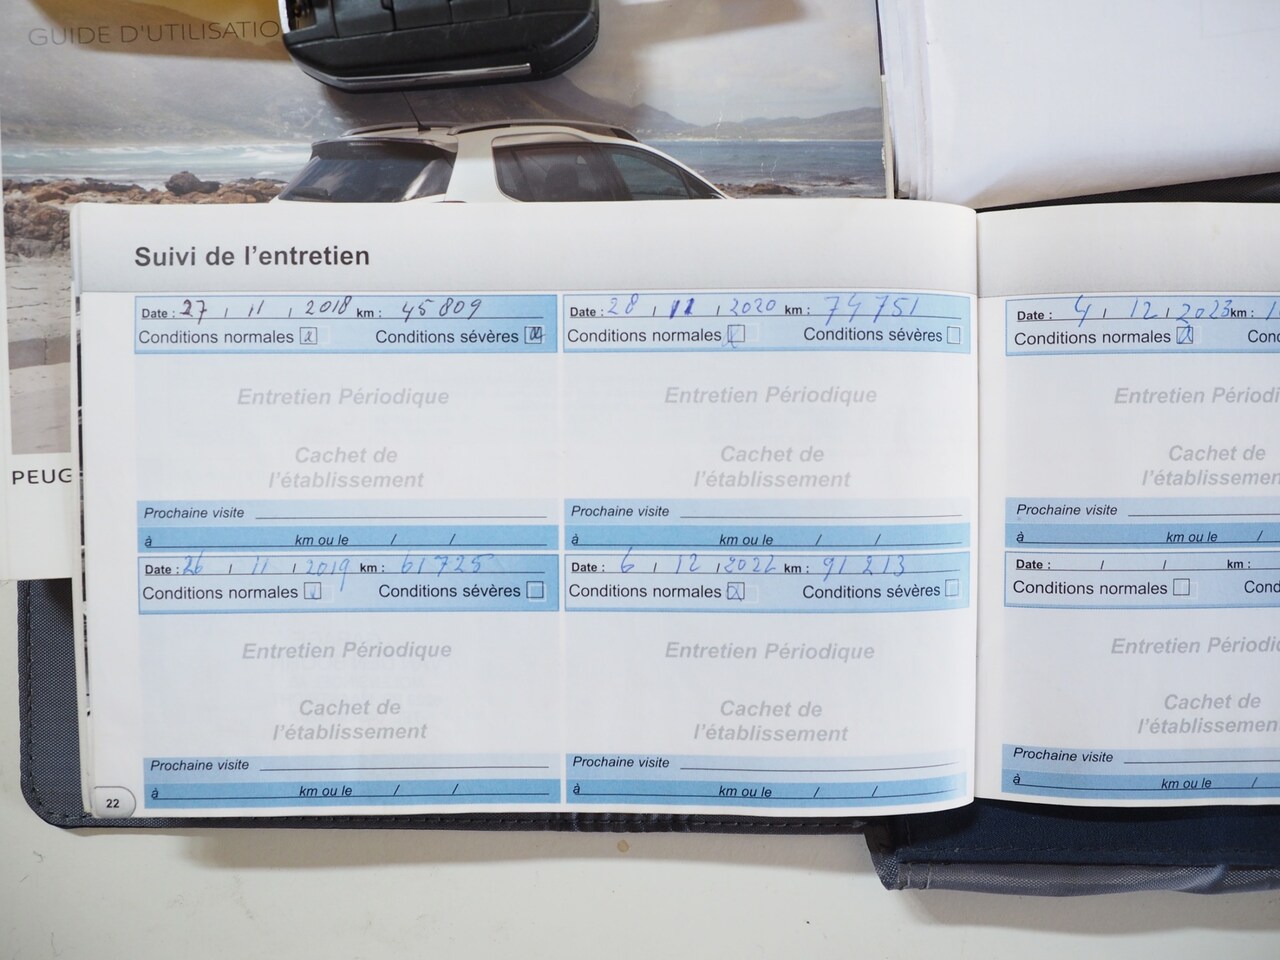 GUIDE D'UTILISATIO
PEUG
Suivi de l'entretien
Date : 27 / 11 / 2018 km : 45 809
Conditions normales Conditions sévères
Entretien Périodique
Cachet de
l'établissement
Prochaine visite
à km ou le / /
Date : 26 / 11 / 2019 km : 61 725
Conditions normales Conditions sévères
Entretien Périodique
Cachet de
l'établissement
Prochaine visite
à km ou le / /
22
Date : 28 / 11 / 2020 km : 74 751
Conditions normales Conditions sévères
Entretien Périodique
Cachet de
l'établissement
Prochaine visite
à km ou le / /
Date : 6 / 12 / 2022 km : 91 213
Conditions normales Conditions sévères
Entretien Périodique
Cachet de
l'établissement
Prochaine visite
à km ou le / /
Date : 4 / 12 / 2023 km : 1
Conditions normales Cond
Entretien Périodi
Cachet de
l'établissemen
Prochaine visite
à km ou le /
Date : / / km :
Conditions normales Cond
Entretien Périodi
Cachet de
l'établissemen
Prochaine visite
à km ou le /